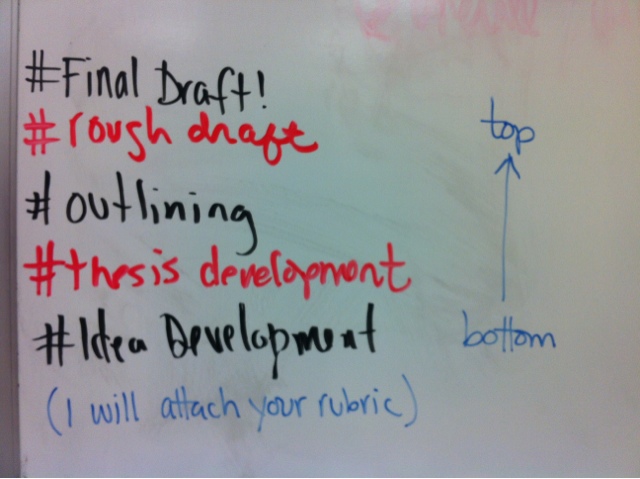 #Final Draft!
#rough draft
#outlining
#thesis development
#Idea Development
(I will attach your rubric)
top
bottom